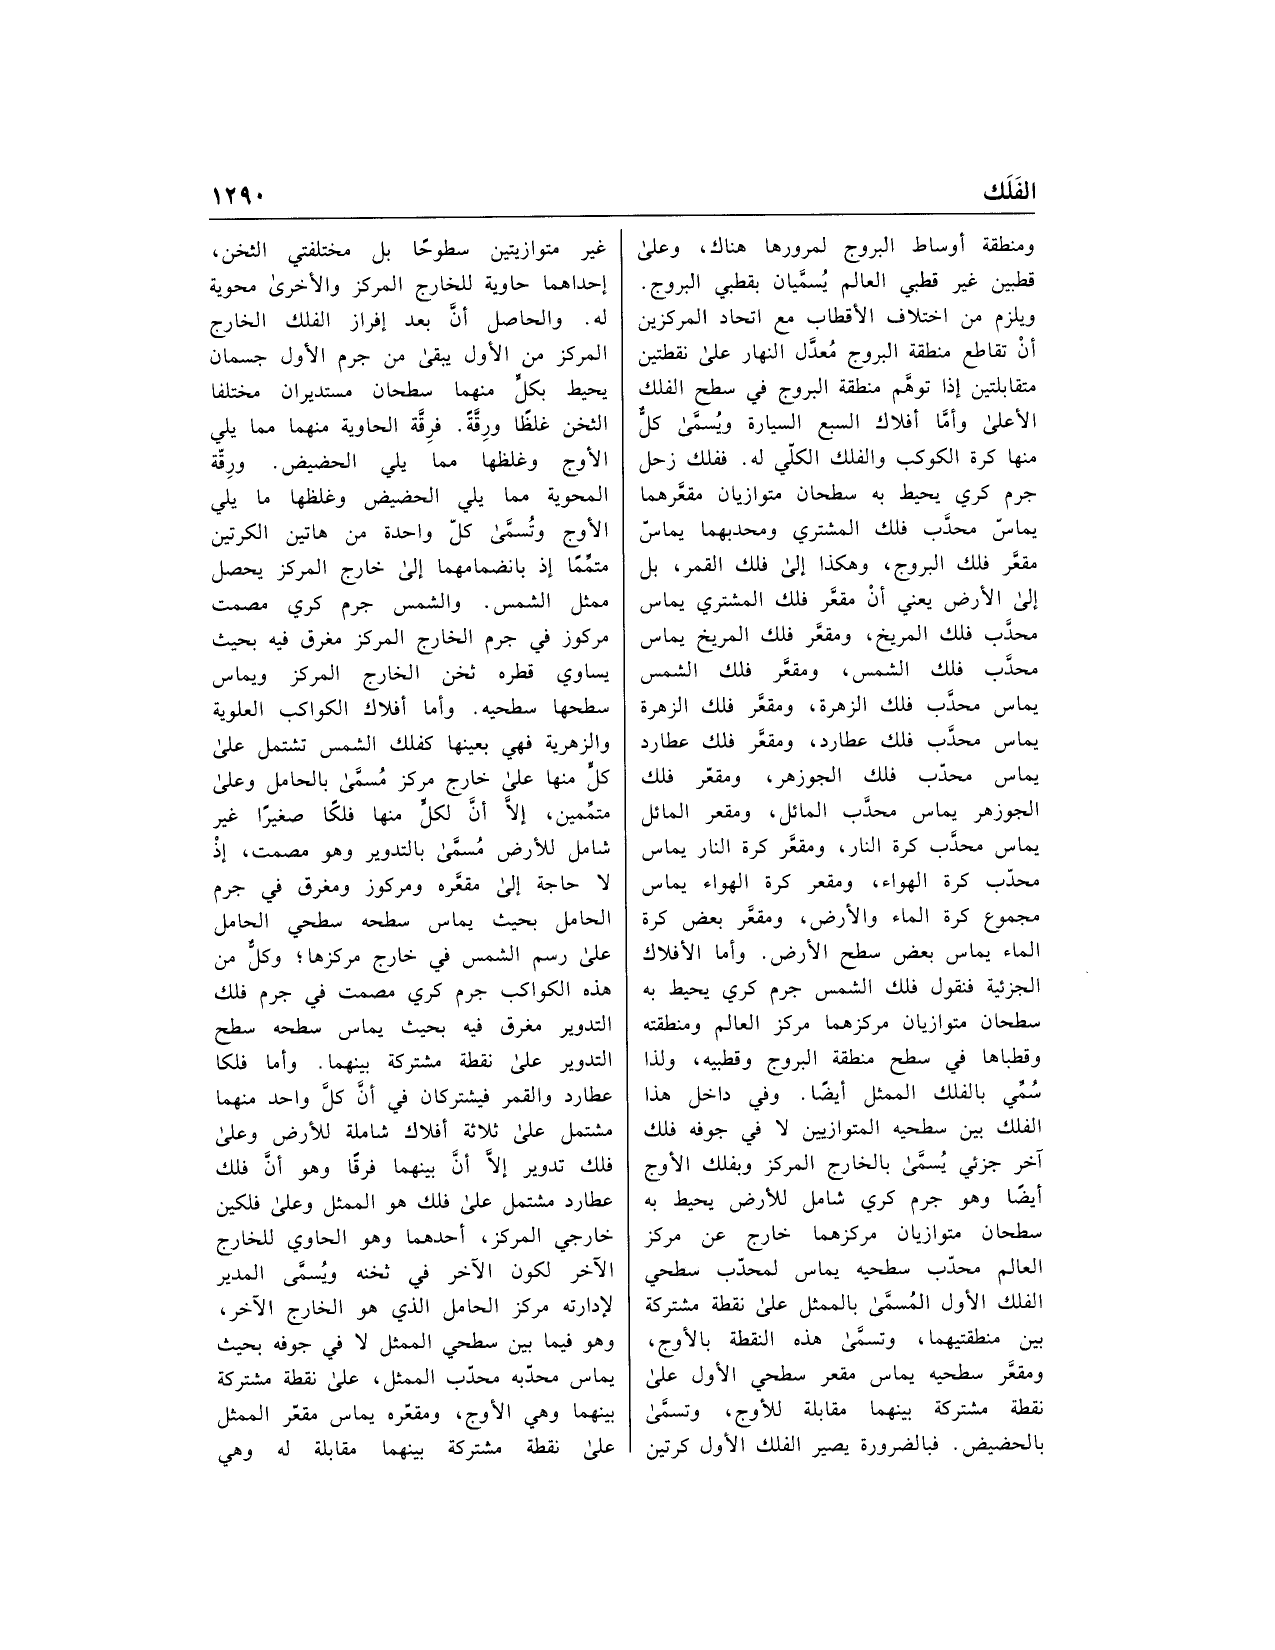 الفَلَك
١٢٩٠
ومنطقة أوساط البروج لمرورها هناك، وعلىٰ
قطبين غير قطبي العالم يُسمَّيان بقطبي البروج.
ويلزم من اختلاف الأقطاب مع اتحاد المركزين
أنْ تقاطع منطقة البروج مُعدَّل النهار علىٰ نقطتين
متقابلتين إذا توهَّم منطقة البروج في سطح الفلك
الأعلىٰ وأمَّا أفلاك السبع السيارة ويُسمَّىٰ كلٌّ
منها كرة الكوكب والفلك الكلّي له. ففلك زحل
جرم كري يحيط به سطحان متوازيان مقعَّرهما
يماسّ محدَّب فلك المشتري ومحدبهما يماسّ
مقعَّر فلك البروج، وهكذا إلىٰ فلك القمر، بل
إلىٰ الأرض يعني أنْ مقعَّر فلك المشتري يماس
محدَّب فلك المريخ، ومقعَّر فلك المريخ يماس
محدَّب فلك الشمس، ومقعَّر فلك الشمس
يماس محدَّب فلك الزهرة، ومقعَّر فلك الزهرة
يماس محدَّب فلك عطارد، ومقعَّر فلك عطارد
يماس محدّب فلك الجوزهر، ومقعّر فلك
الجوزهر يماس محدَّب المائل، ومقعر المائل
يماس محدَّب كرة النار، ومقعَّر كرة النار يماس
محدّب كرة الهواء، ومقعر كرة الهواء يماس
مجموع كرة الماء والأرض، ومقعَّر بعض كرة
الماء يماس بعض سطح الأرض. وأما الأفلاك
الجزئية فنقول فلك الشمس جرم كري يحيط به
سطحان متوازيان مركزهما مركز العالم ومنطقته
وقطباها في سطح منطقة البروج وقطبيه، ولذا
سُمِّي بالفلك الممثل أيضًا. وفي داخل هذا
الفلك بين سطحيه المتوازيين لا في جوفه فلك
آخر جزئي يُسمَّىٰ بالخارج المركز وبفلك الأوج
أيضًا وهو جرم كري شامل للأرض يحيط به
سطحان متوازيان مركزهما خارج عن مركز
العالم محدّب سطحيه يماس لمحدّب سطحي
الفلك الأول المُسمَّىٰ بالممثل علىٰ نقطة مشتركة
بين منطقتيهما، وتسمَّىٰ هذه النقطة بالأوج،
ومقعَّر سطحيه يماس مقعر سطحي الأول علىٰ
نقطة مشتركة بينهما مقابلة للأوج، وتسمَّىٰ
بالحضيض. فبالضرورة يصير الفلك الأول كرتين
غير متوازيتين سطوحًا بل مختلفتي الثخن،
إحداهما حاوية للخارج المركز والأخرىٰ محوية
له. والحاصل أنَّ بعد إفراز الفلك الخارج
المركز من الأول يبقىٰ من جرم الأول جسمان
يحيط بكلٍّ منهما سطحان مستديران مختلفا
الثخن غلظًا ورِقَّةً. فرِقَّة الحاوية منهما مما يلي
الأوج وغلظها مما يلي الحضيض. ورِقّة
المحوية مما يلي الحضيض وغلظها ما يلي
الأوج وتُسمَّىٰ كلّ واحدة من هاتين الكرتين
متمِّمًا إذ بانضمامهما إلىٰ خارج المركز يحصل
ممثل الشمس. والشمس جرم كري مصمت
مركوز في جرم الخارج المركز مغرق فيه بحيث
يساوي قطره ثخن الخارج المركز ويماس
سطحها سطحيه. وأما أفلاك الكواكب العلوية
والزهرية فهي بعينها كفلك الشمس تشتمل علىٰ
كلٍّ منها علىٰ خارج مركز مُسمَّىٰ بالحامل وعلىٰ
متمِّمين، إلاَّ أنَّ لكلٍّ منها فلكًا صغيرًا غير
شامل للأرض مُسمَّىٰ بالتدوير وهو مصمت، إذْ
لا حاجة إلىٰ مقعَّره ومركوز ومغرق في جرم
الحامل بحيث يماس سطحه سطحي الحامل
علىٰ رسم الشمس في خارج مركزها؛ وكلٌّ من
هذه الكواكب جرم كري مصمت في جرم فلك
التدوير مغرق فيه بحيث يماس سطحه سطح
التدوير علىٰ نقطة مشتركة بينهما. وأما فلكا
عطارد والقمر فيشتركان في أنَّ كلَّ واحد منهما
مشتمل علىٰ ثلاثة أفلاك شاملة للأرض وعلىٰ
فلك تدوير إلاَّ أنَّ بينهما فرقًا وهو أنَّ فلك
عطارد مشتمل علىٰ فلك هو الممثل وعلىٰ فلكين
خارجي المركز، أحدهما وهو الحاوي للخارج
الآخر لكون الآخر في ثخنه ويُسمَّى المدير
لإدارته مركز الحامل الذي هو الخارج الآخر،
وهو فيما بين سطحي الممثل لا في جوفه بحيث
يماس محدّبه محدّب الممثل، علىٰ نقطة مشتركة
بينهما وهي الأوج، ومقعّره يماس مقعّر الممثل
علىٰ نقطة مشتركة بينهما مقابلة له وهي